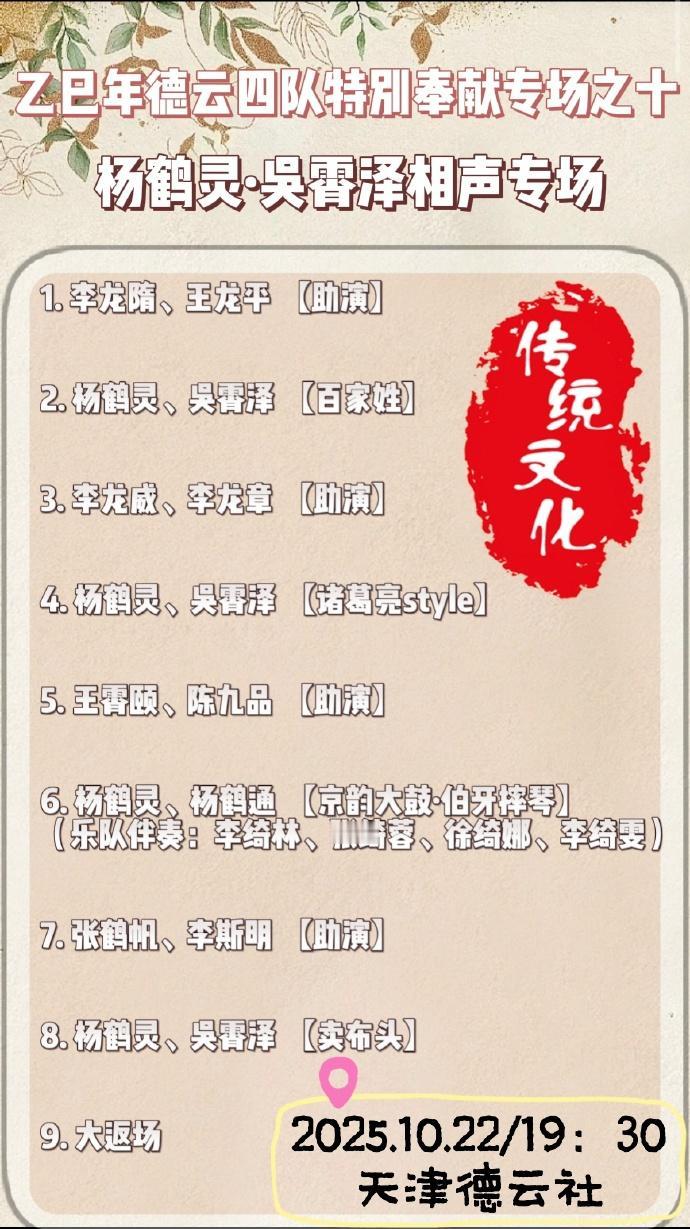 乙巳年德云四队特别奉献专场之十
杨鹤灵·吳霄泽相声专场
传统文化
1. 李龙隋、王龙平 【助演】
2. 杨鹤灵、吳霄泽 【百家姓】
3. 李龙威、李龙章 【助演】
4. 杨鹤灵、吳霄泽 【诸葛亮style】
5. 王霄颐、陈九品 【助演】
6. 杨鹤灵、杨鹤通 【京韵大鼓·伯牙摔琴】
（乐队伴奏：李绮林、蓉、徐绮娜、李绮雯）
7. 张鹤帆、李斯明 【助演】
8. 杨鹤灵、吳霄泽 【卖布头】
9. 大返场
2025.10.22/19：30
天津德云社